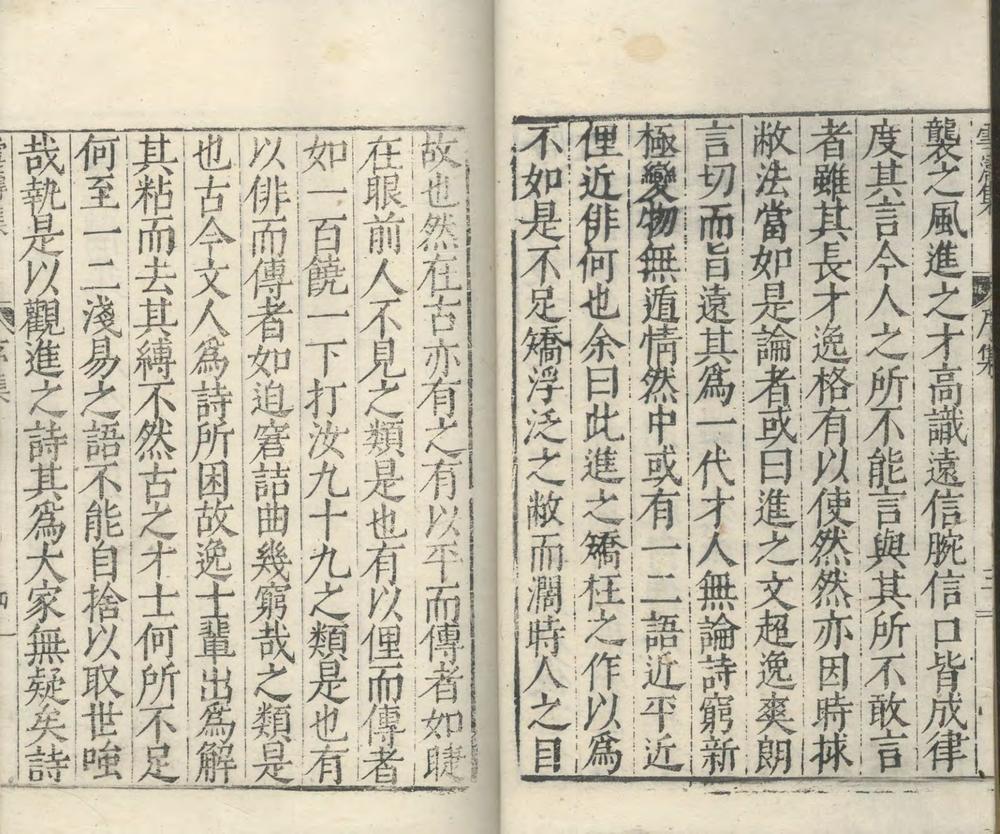 襲之風進之才高識遠信腕信口皆成律
度其言今人之所不能言與其所不敢言
者雖其長才逸格有以使然然亦因時捄
敝法當如是論者或曰進之文超逸爽朗
言切而旨遠其爲一代才人無論詩窮新
極變物無遁情然中或有一二語近平近
俚近俳何也余曰此進之矯枉之作以爲
不如是不足矯浮泛之敝而濶時人之目
故也然在古亦有之有以平而傳者如睫
在眼前人不見之類是也有以俚而傳者
如一百饒一下打汝九十九之類是也有
以俳而傳者如迫窘詰曲幾窮哉之類是
也古今文人爲詩所困故逸士輩出爲解
其粘而去其縛不然古之才士何所不足
何至一二淺易之語不能自捨以取世嗤
哉執是以觀進之詩其爲大家無疑矣詩